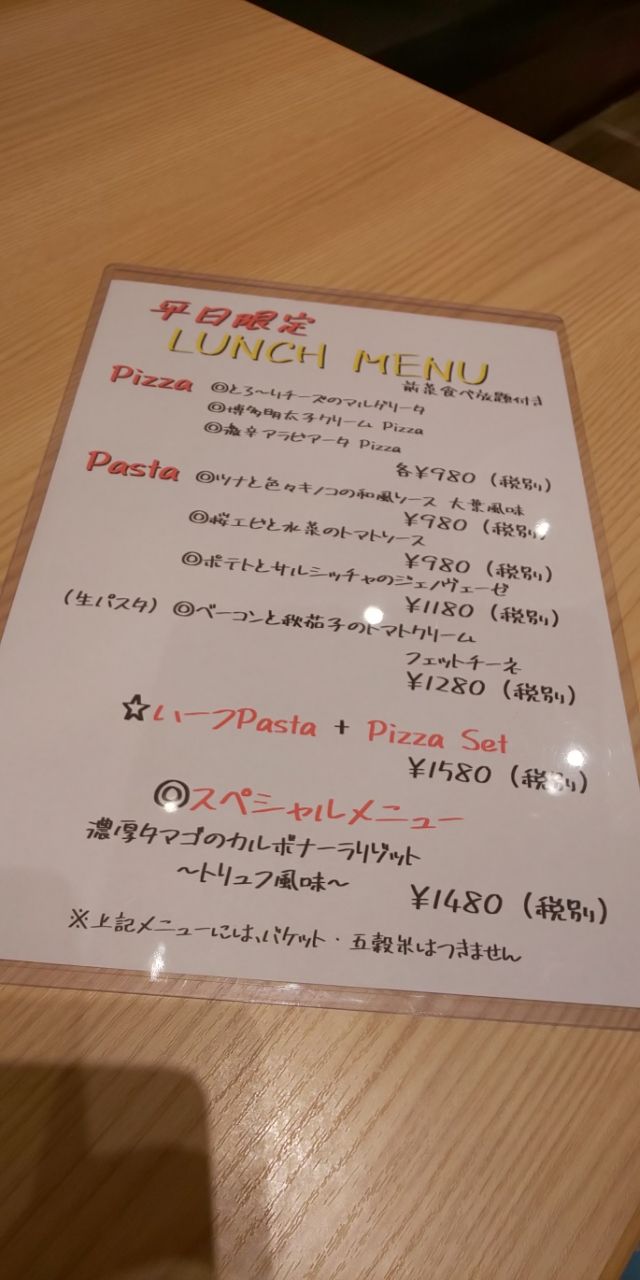 平日限定
LUNCH MENU
前菜食べ放題付き
Pizza ◎とろ〜りチーズのマルゲリータ
◎博多明太子クリーム Pizza
◎激辛アラビアータ Pizza
各¥980 (税別)
Pasta ◎ツナと色々キノコの和風ソース 大葉風味
¥980 (税別)
◎桜エビと水菜のトマトソース
¥980 (税別)
◎ポテトとサルシッチャのジェノヴェーゼ
¥1180 (税別)
(生パスタ) ◎ベーコンと秋茄子のトマトクリーム
フェットチーネ
¥1280 (税別)
☆ハーフPasta + Pizza Set
¥1580 (税別)
◎スペシャルメニュー
濃厚タマゴのカルボナーラリゾット
〜トリュフ風味〜 ¥1480 (税別)
※上記メニューには、バケット・五穀米はつきません